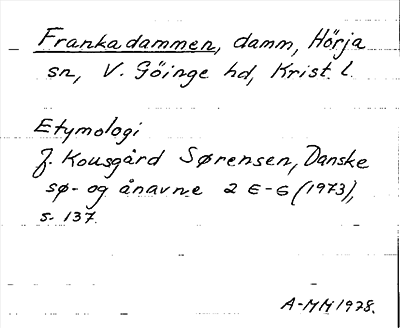 Frankadammen, damm, Hörja
sn, V. Göinge hd, Krist. l.
Etymologi
J. Kousgård Sørensen, Danske
sø- og ånavne 2 E-G (1973),
s. 137.
A-MM 1978.